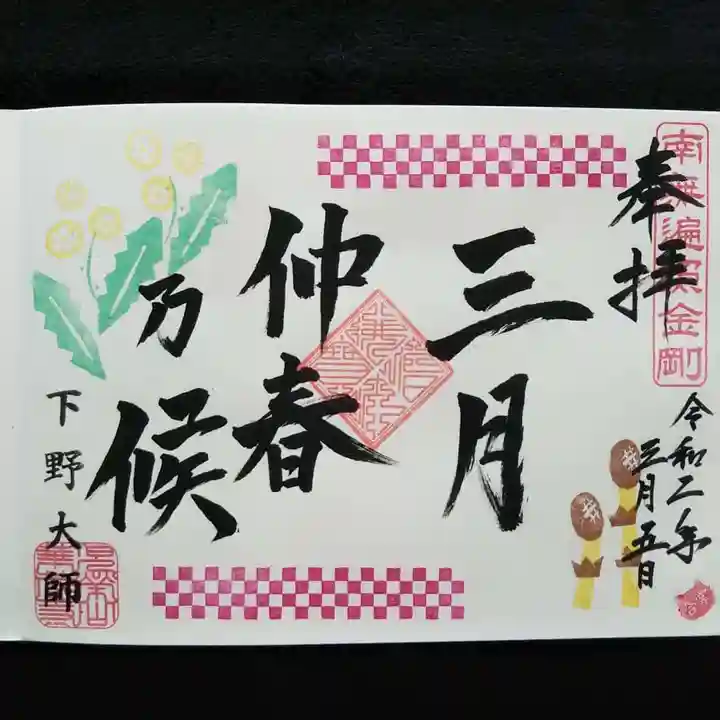 奉拝
南無遍照金剛
令和二年
三月五日
三月
仲春
乃
候
下野大師